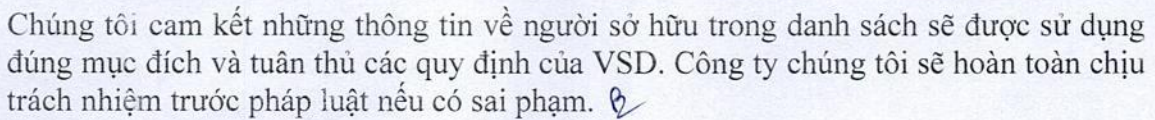 Chúng tôi cam kết những thông tin về người sở hữu trong danh sách sẽ được sử dụng
đúng mục đích và tuân thủ các quy định của VSD. Công ty chúng tôi sẽ hoàn toàn chịu
trách nhiệm trước pháp luật nếu có sai phạm.